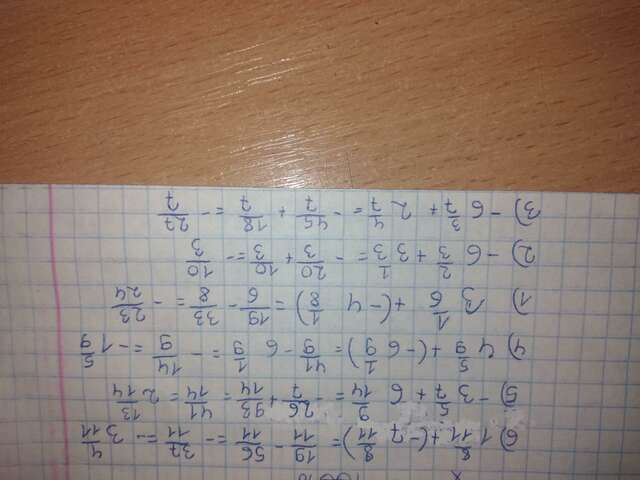 6) 1 8/11 + (- 7 8/11) = 19/11 - 56/11 = - 37/11 = - 3 4/11
5) - 3 5/7 + 6 9/14 = - 26/7 + 93/14 = 41/14 = 2 13/14
4) 4 5/9 + (- 6 1/9) = 41/9 - 6 1/9 = - 14/9 = - 1 5/9
1) 3 1/6 + (- 4 1/8) = 19/6 - 33/8 = - 23/24
2) - 6 2/3 + 3 1/3 = - 20/3 + 10/3 = - 10/3
3) - 6 3/7 + 2 4/7 = - 45/7 + 18/7 = - 27/7